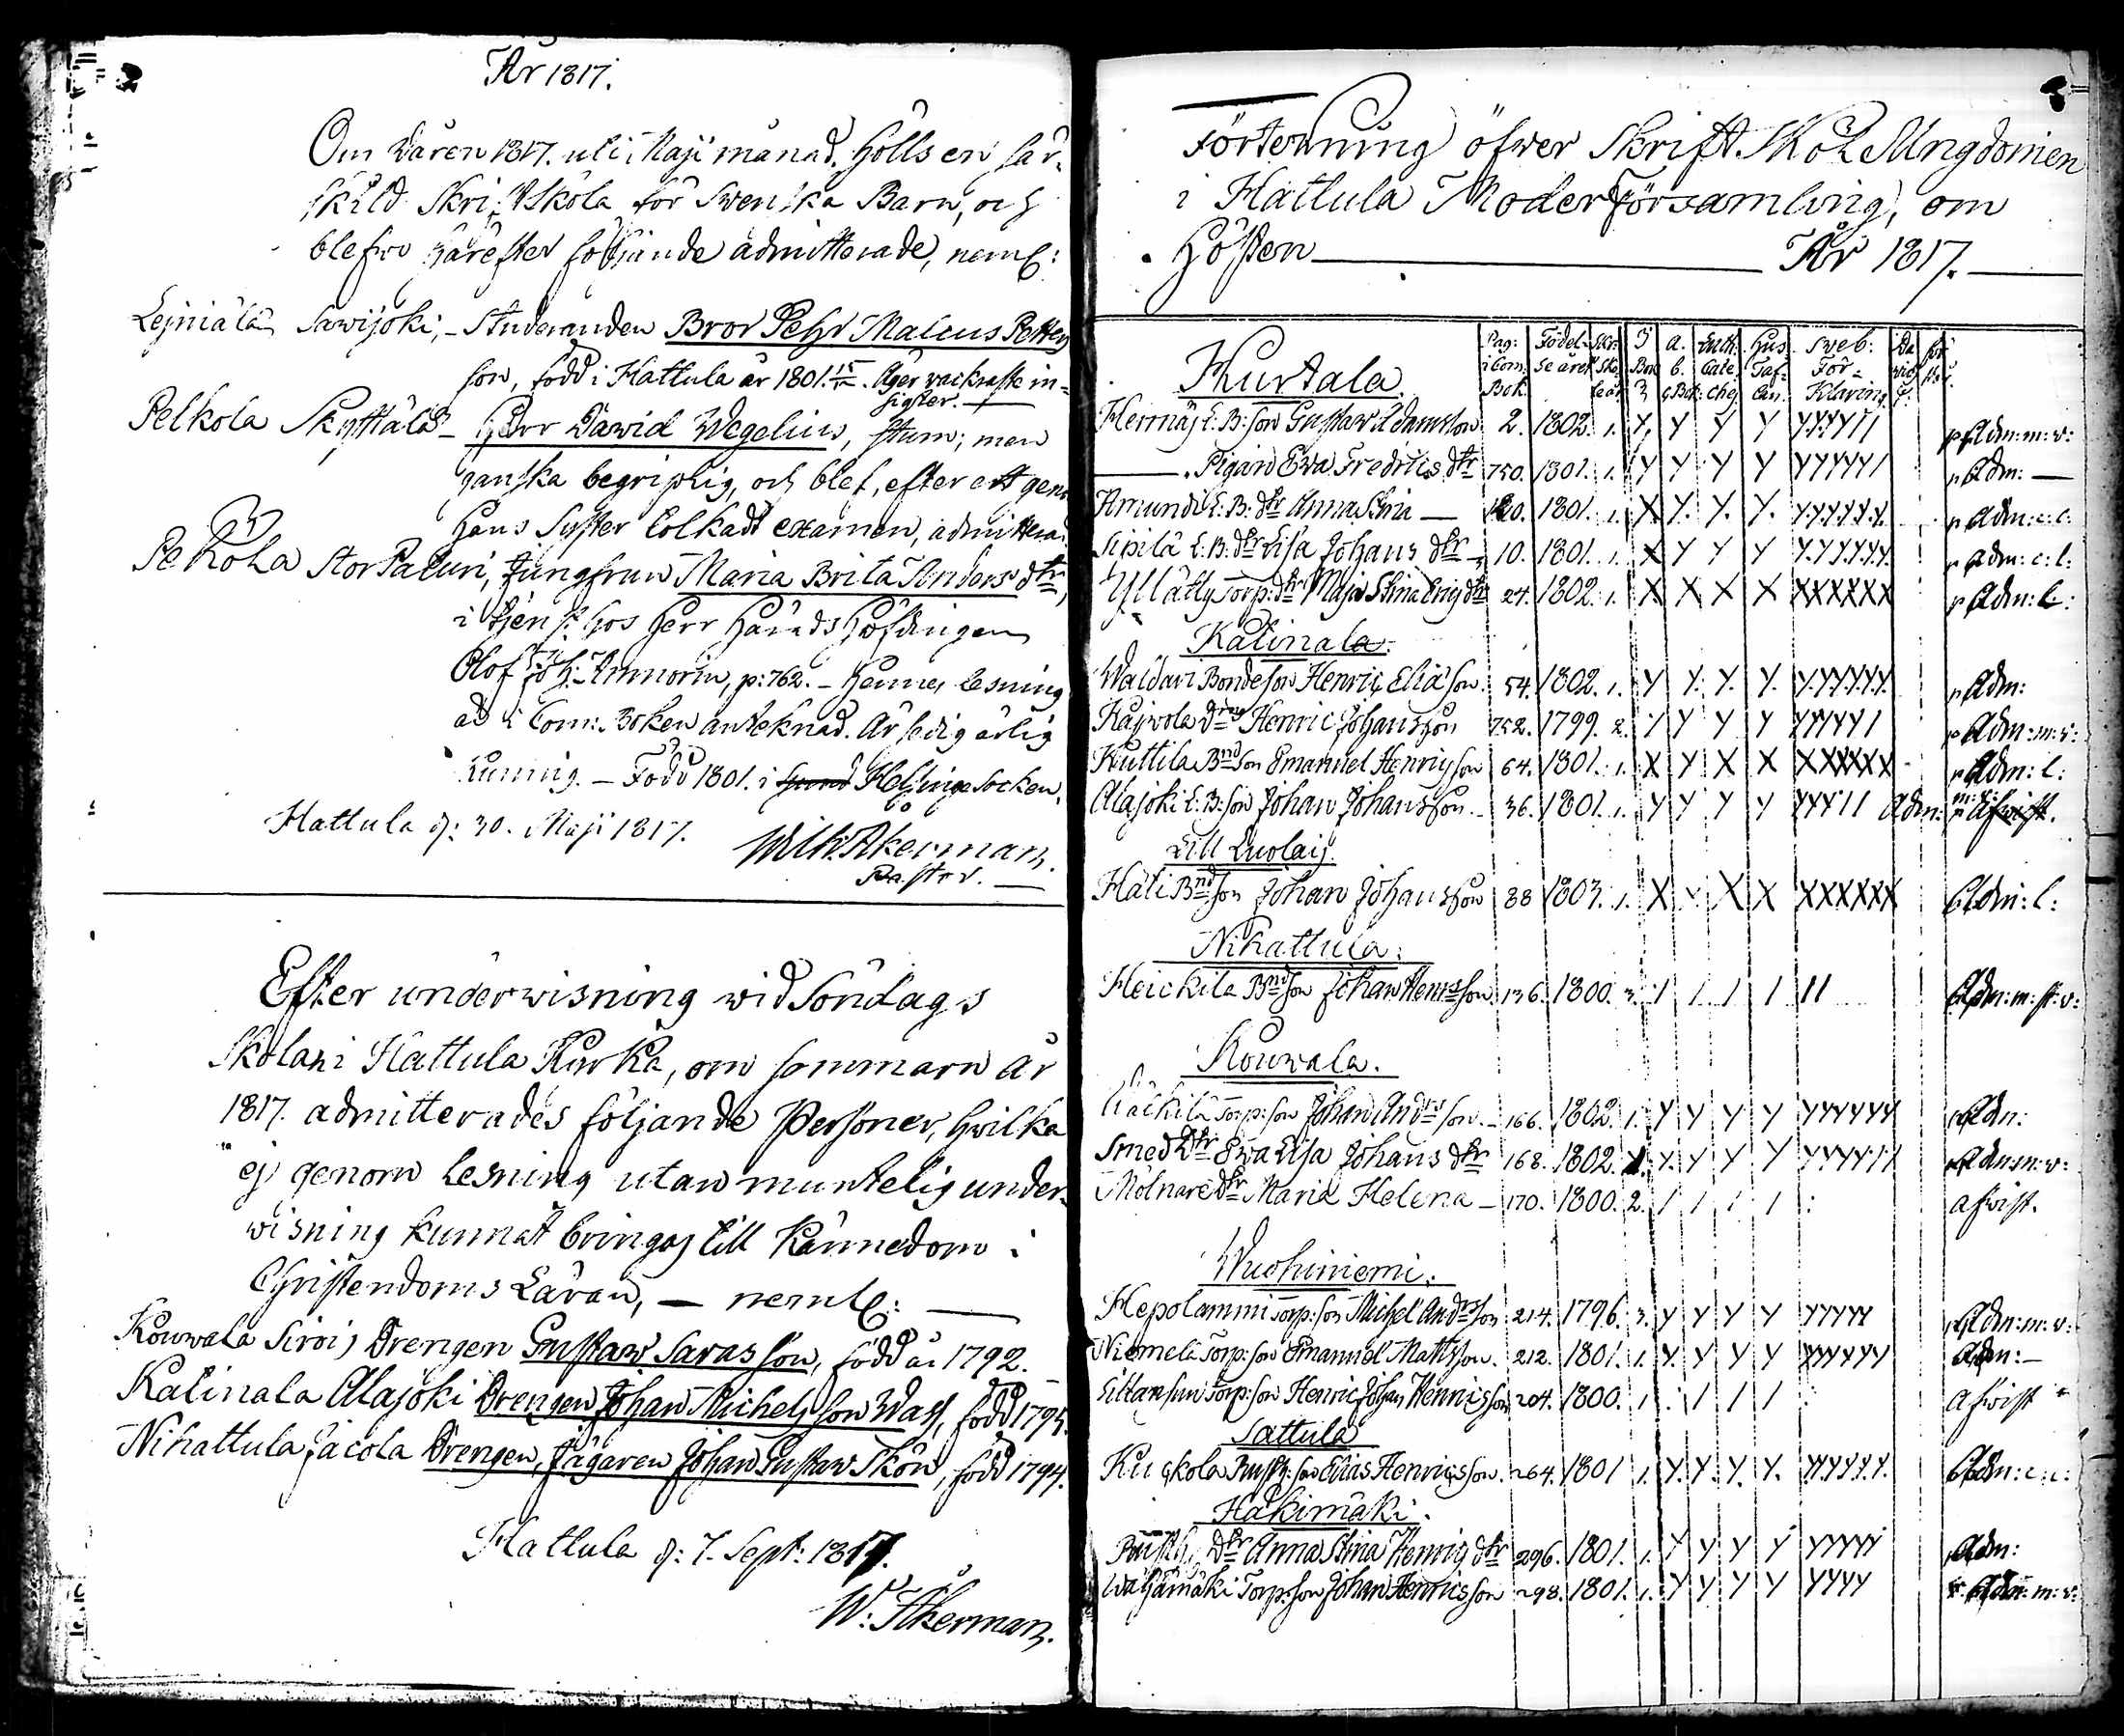 År 1817.
Om Wåren 1817. uti Maji månad, hölls en sär-
skild Skriftskola för Swenska Barn, och
blefwo härefter följande admitterade, neml:
Lejniälä Sawijoki, - Studeranden Bror Pehr Malcus Petters
son, född i Hattula år 1801. Äger wackraste in-
sigter. —
Pelkola Skyttälä - Herr Dawid Wegelius, stum; men
ganska begriplig, och blef, efter ett genom
hans Syster tolkadt examen, admitterad
Pekola Stor Paturi, Jungfrun Maria Brita Anders dtr,
i tjenst hos Herr Häradshöfdingen
Olof Joh: Ammorin, p: 762. - Hennes lesning
är i Com: Boken anteknad. Är sedig ärlig
kunnig. - Född 1801. i Helsinge Socken.
Hattula d: 30. Maji 1817.
Wilh: Åkerman.
Pastor. —
Efter underwisning wid Söndags
Skolan i Hattula Kyrka, om sommarn år
1817. admitterades följande Personer, hwilka
ej genom lesning utan muntelig under-
wisning kunnat bringas till kännedom i
Christendoms Läran, — neml: —
Kouwala Sirois Drengen Gustaw Saras son, född år 1792.
Katinala Alajoki Drengen Johan Michels son Wass, född 1795.
Nihattula Jacola Drengen, Jägaren Johan Gustaw Skön, född 1794.
Hattula d: 7. Sept: 1817.
W. Åkerman.
Förtekning öfwer Skrift Skol Ungdomen
i Hattula Moder Församling, om
Hösten — År 1817. —
Pag: i Com. Bok. Födel- se året Skr: Sko- leår I Bok A. b. c Bok: Luth: Cate- ches Hus Taf- lan. Sweb: För- klaring Da- vid
Kurtala.
Hermäj L: B: son Gustaw Adamsson 2. 1802. 1. Y Y Y Y YYYYII Adm: m: v:
— Pigan Ewa Fredrics dtr 750. 1801. 1. Y Y Y Y YYYYYI Adm: —
Amundi L: B: dtr Anna Stina — 120. 1801. 1. X Y. Y. Y. YYYYYY Adm: c: l:
Sipilä L: B: dtr Lisa Johans dtr - 10. 1801. 1. X Y Y Y YYYYYY Adm: c: l:
Yllätty Torp: dtr Maja Stina Erics dtr 24. 1802. 1. X X X X XXXXXX Adm: l:
Katinala.
Waldari Bondeson Henric Elia son. 54. 1802. 1. Y Y. Y. Y. YYYYYY Adm:
Kajwola dreng Henric Johansson 752. 1799. 2. Y Y Y Y YYYYYI Adm: m: v:
Kuttila Bndson Emanuel Henricsson 64. 1801. 1. X Y X X XXXXXX Adm: l:
Alajoki L: B: son Johan Johansson. 36. 1801. 1. Y Y Y Y YYYII Adm: m: v: afwist.
Lill Luolais.
Häti Bndson Johan Johansson 88 1803. 1. X Y X X XXXXXX Adm: l:
Nihattula.
Heickilä Bndson Johan Henrsson 136. 1800. 3. I I I I II Adm: m: st: v:
Kouwala.
Torp: son Johan Andrsson. - 166. 1802. 1. Y Y Y Y YYYYYY Adm:
Smed Dtr Ewa Lisa Johans dtr 168. 1802. 1. Y. Y Y Y YYYYII Adm: m: v:
Mölnare dtr Maria Helena - 170. 1800. 2. I I I I : afwist.
Wuohiniemi.
Hepolammi Torp: son Michel Andrsson 214. 1796. 3. Y Y Y Y YYYYY Adm: m: v:
Niemelä Torp: son Emanuel Mattsson. 212. 1801. 1. Y. Y Y Y YYYYYY Adm: —
Torp: son Henric Johan Henricsson 204. 1800. 1. I I I afwist
Sattula
Kuckola Rusth: son Elias Henricsson. 264. 1801 1. Y. Y. Y. Y. YYYYYY. Adm: c: l:
Hakimäki.
Rusth: Dtr Anna Stina Henrics dtr 296. 1801. 1. Y Y Y Y YYYYY Adm:
Torp: son Johan Henricsson 298. 1801. 1. Y Y Y Y YYYY Adm: m: v: